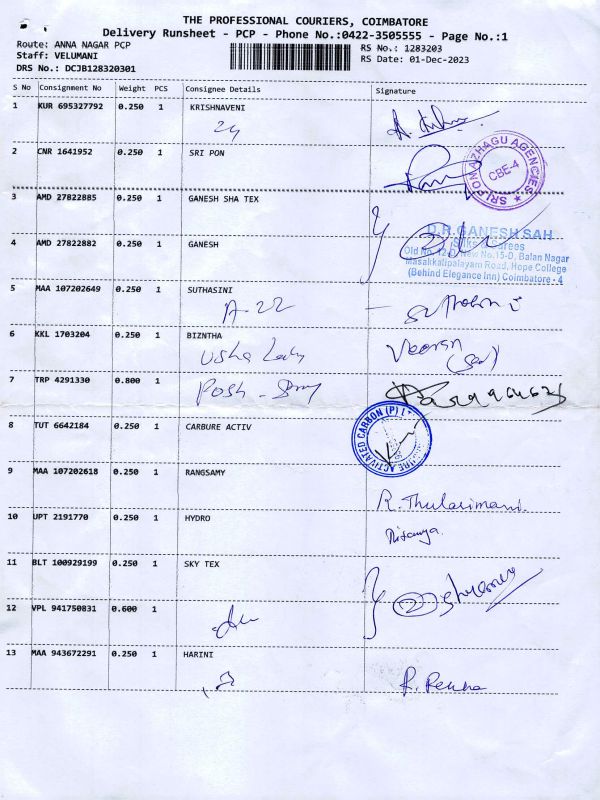 THE PROFESSIONAL COURIERS, COIMBATORE
Delivery Runsheet - PCP - Phone No.:0422-3505555 - Page No.:1
Route: ANNA NAGAR PCP
RS No.: 1283203
Staff: VELUMANI
RS Date: 01-Dec-2023
DRS No.: DCJB128320301
S No Consignment No Weight PCS Consignee Details Signature
1 KUR 695327792 0.250 1 KRISHNAVENI
24
2 CNR 1641952 0.250 1 SRI PON
SRI PONAZHAGU AGENCIES
CBE-4
3 AMD 27822885 0.250 1 GANESH SHA TEX
D.R.GANESH SAH
Silks & Sarees
4 AMD 27822882 0.250 1 GANESH
Old No. 12-D, New No.15-D, Balan Nagar
Masakkalipalayam Road, Hope College
(Behind Elegance Inn) Coimbatore - 4
5 MAA 107202649 0.250 1 SUTHASINI
A-22
6 KKL 1703204 0.250 1 BIZNTHA
Usha Lady
7 TRP 4291330 0.800 1
Posh
8 TUT 6642184 0.250 1 CARBURE ACTIV
ACTIVATED CARBON (P)
9 MAA 107202618 0.250 1 RANGSAMY
R. Thulasimani
10 UPT 2191770 0.250 1 HYDRO
11 BLT 100929199 0.250 1 SKY TEX
2
12 VPL 941750831 0.600 1
13 MAA 943672291 0.250 1 HARINI
R. Renuka